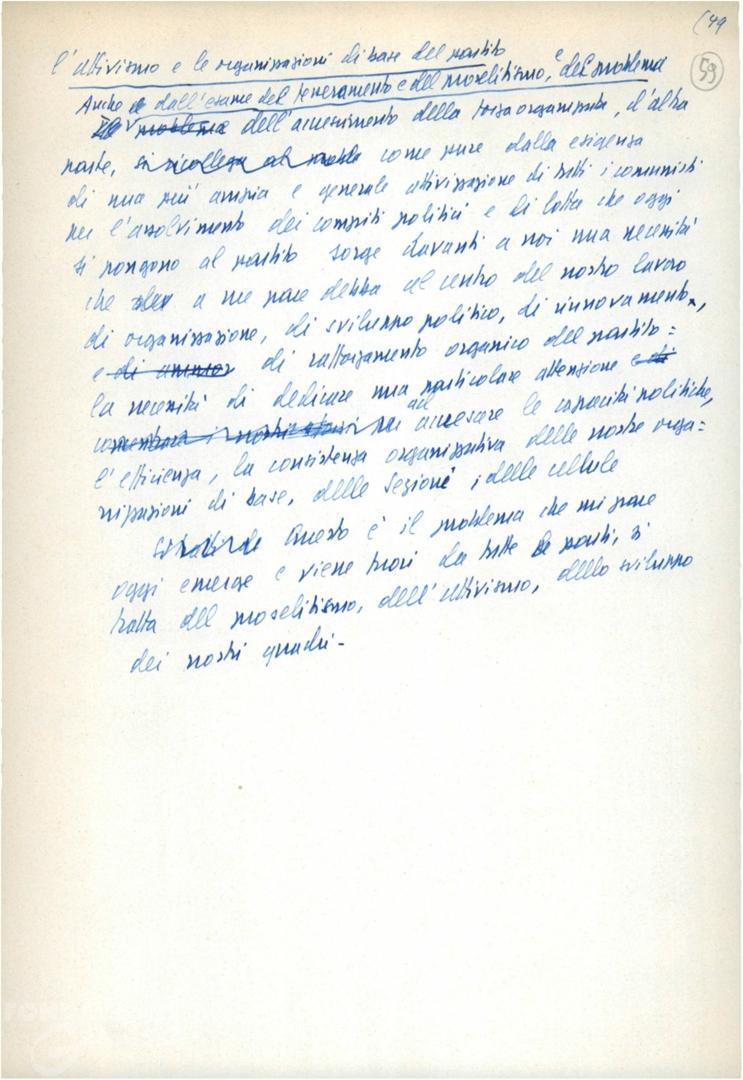 (49
59
l'attivismo e le organizzazioni di base del partito
Anche dall'esame del tesseramento e del proselitismo, e del problema
Il problema dell'accrescimento della forza organizzata, d'altra
parte, si ricollega al come pure dalla esigenza
di una più ampia e generale attivizzazione di tutti i comunisti
per l'assolvimento dei compiti politici e di lotta che oggi
si pongono al partito sorge davanti a noi una necessità
che a me pare debba al centro del nostro lavoro
di organizzazione, di sviluppo politico, di rinnovamento,
e di di rafforzamento organico del partito:
la necessità di dedicare una particolare attenzione e di
i nostri sforzi per ad accrescere le capacità politiche,
l'efficienza, la consistenza organizzativa delle nostre orga=
nizzazioni di base, delle Sezioni, delle cellule
Questo è il problema che mi pare
oggi emerge e viene fuori da tutte le parti, si
tratta del proselitismo, dell'attivismo, dello sviluppo
dei nostri quadri -